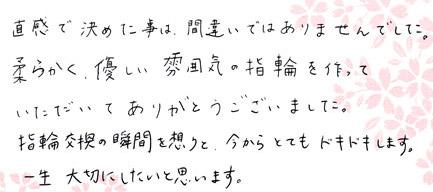 直感で決めた事は、間違いではありませんでした。
柔らかく、優しい雰囲気の指輪を作って
いただいてありがとうございました。
指輪交換の瞬間を想うと、今からとてもドキドキします。
一生大切にしたいと思います。